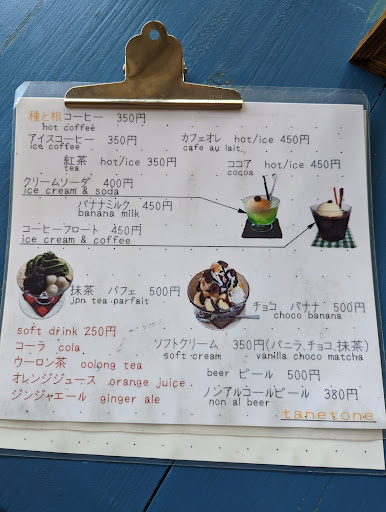 種と根コーヒー 350円
hot coffee
アイスコーヒー 350円 カフェオレ hot/ice 450円
ice coffee cafe au lait
紅茶 hot/ice 350円 ココア hot/ice 450円
tea cocoa
クリームソーダ 400円
ice cream & soda
バナナミルク 450円
banana milk
コーヒーフロート 450円
ice cream & coffee
抹茶 パフェ 500円
jpn tea parfait
チョコ バナナ 500円
choco banana
soft drink 250円
ソフトクリーム 350円(バニラ,チョコ,抹茶)
soft cream vanilla choco matcha
コーラ cola
ウーロン茶 oolong tea
beer ビール 500円
オレンジジュース orange juice
ノンアルコールビール 380円
non al beer
ジンジャエール ginger ale
tanetone